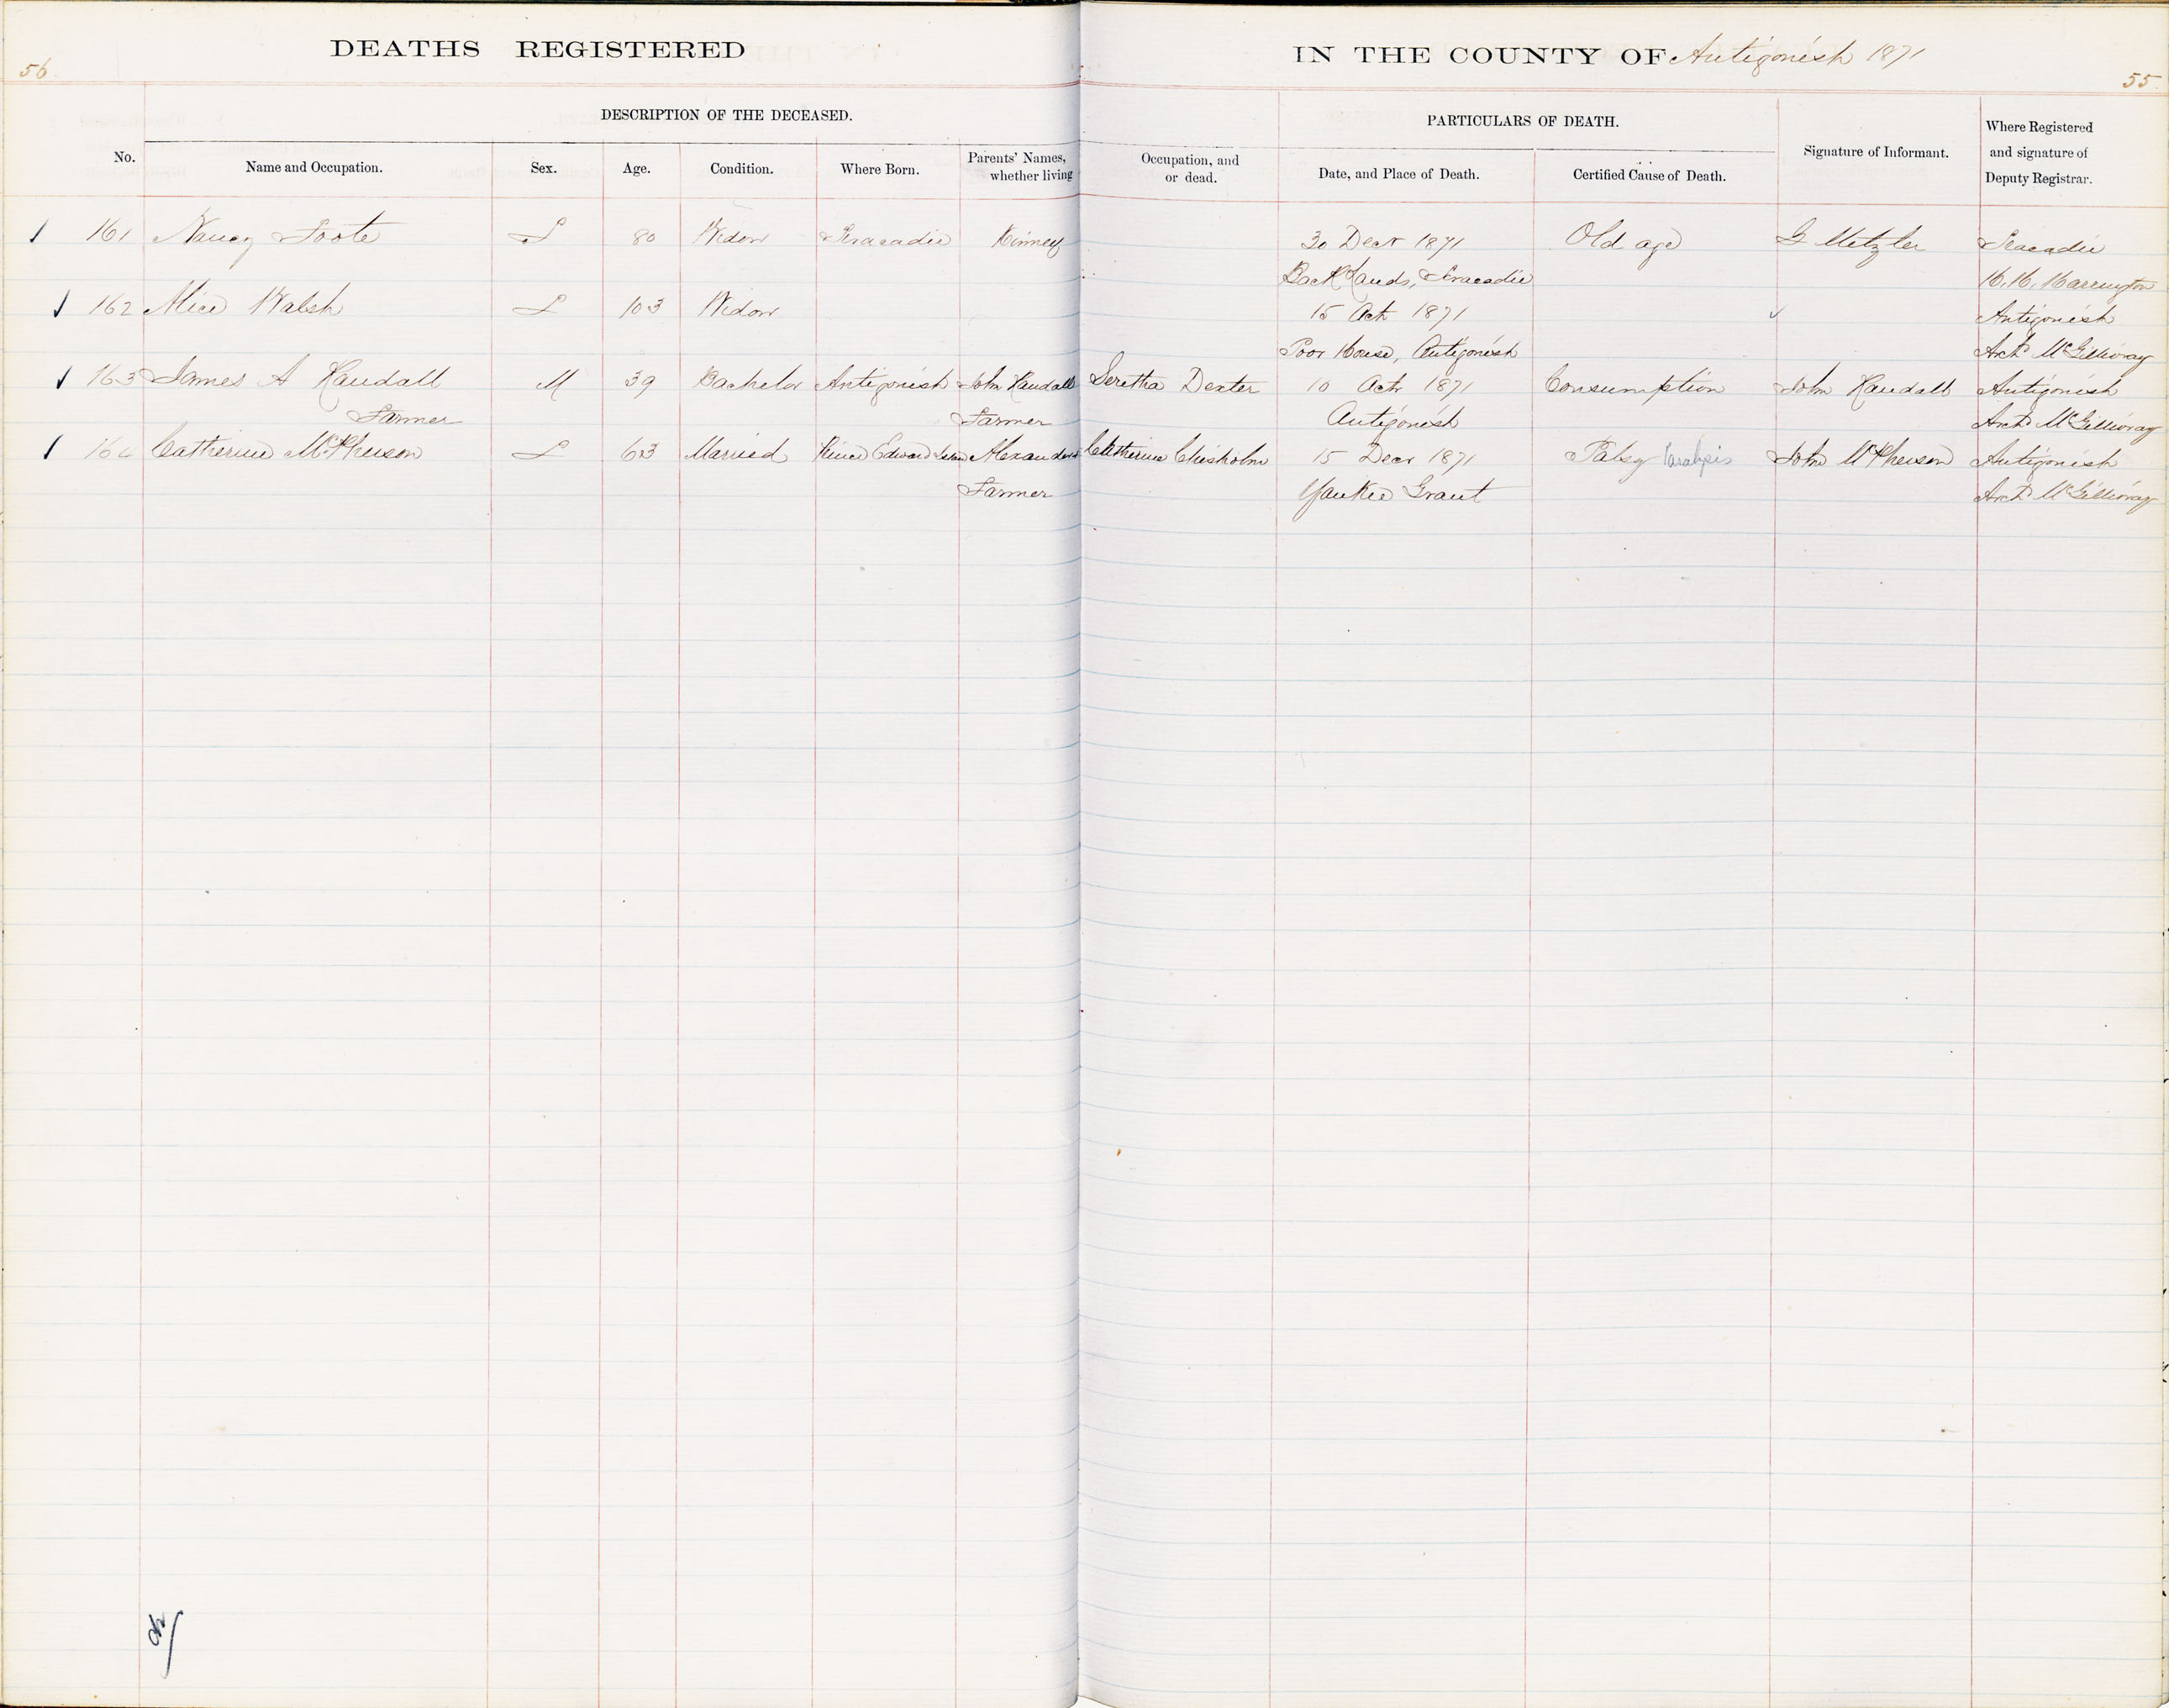 DEATHS REGISTERED IN THE COUNTY OF Antigonish 1871
56 55
DESCRIPTION OF THE DECEASED. PARTICULARS OF DEATH.
No. Name and Occupation. Sex. Age. Condition. Where Born. Parents' Names, whether living Occupation, and or dead. Date, and Place of Death. Certified Cause of Death. Signature of Informant. Where Registered and signature of Deputy Registrar.
161 Nancy Foote F 80 Widow Tracadie Kinney 30 Decr 1871 Old age G Metzler Tracadie
Back Lands, Tracadie H. H. Harrington
162 Alice Walsh F 103 Widow 15 Octr 1871 Antigonish
Poor House, Antigonish Archd McGillivray
163 James A Randall M 39 Bachelor Antigonish John Randall Seretha Dexter 10 Octr 1871 Consumption John Randall Antigonish
Farmer Farmer Antigonish Archd McGillivray
164 Catherine McPherson F 63 Married Prince Edward Island Alexander Catherine Chisholm 15 Decr 1871 Palsy Paralysis John McPherson Antigonish
Farmer Yankee Grant Archd McGillivray